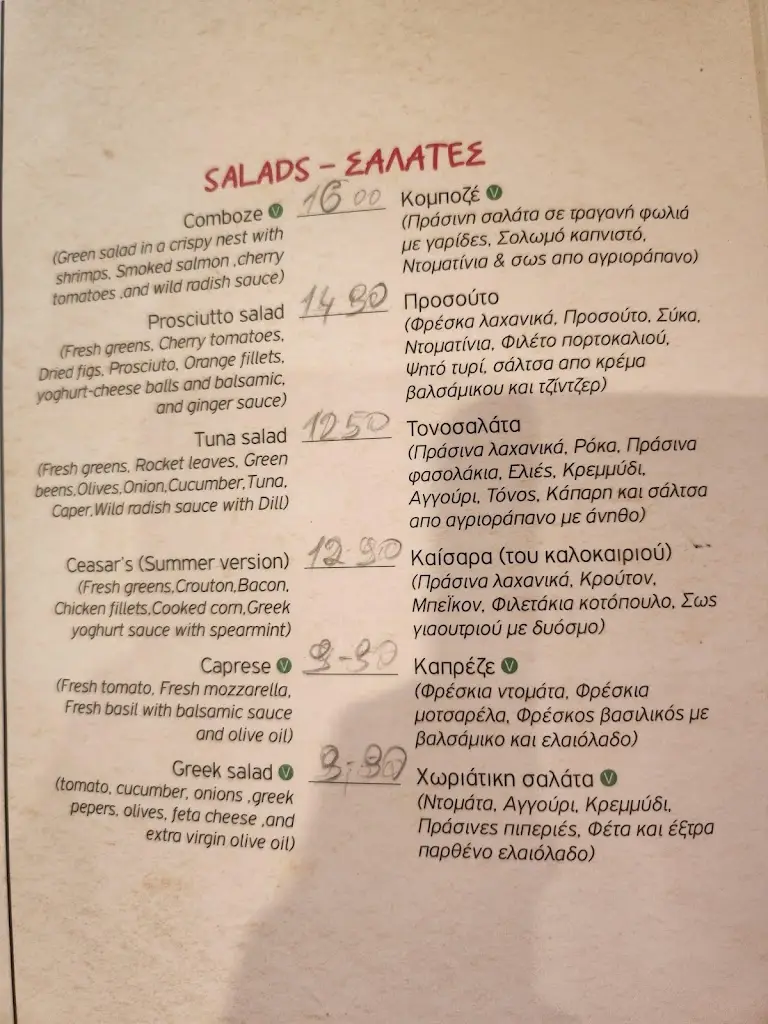 SALADS – ΣΑΛΑΤΕΣ
Comboze V
(Green salad in a crispy nest with
shrimps, Smoked salmon ,cherry
tomatoes ,and wild radish sauce)
16 00
Κομποζέ V
(Πράσινη σαλάτα σε τραγανή φωλιά
με γαρίδες, Σολωμό καπνιστό,
Ντοματίνια & σως απο αγριοράπανο)
Prosciutto salad
(Fresh greens, Cherry tomatoes,
Dried figs, Prosciuto, Orange fillets,
yoghurt-cheese balls and balsamic,
and ginger sauce)
14 90
Προσούτο
(Φρέσκα λαχανικά, Προσούτο, Σύκα,
Ντοματίνια, Φιλέτο πορτοκαλιού,
Ψητό τυρί, σάλτσα απο κρέμα
βαλσάμικου και τζίντζερ)
Tuna salad
(Fresh greens, Rocket leaves, Green
beens,Olives,Onion,Cucumber,Tuna,
Caper,Wild radish sauce with Dill)
12 50
Τονοσαλάτα
(Πράσινα λαχανικά, Ρόκα, Πράσινα
φασολάκια, Ελιές, Κρεμμύδι,
Αγγούρι, Τόνος, Κάπαρη και σάλτσα
απο αγριοράπανο με άνηθο)
Ceasar's (Summer version)
(Fresh greens,Crouton,Bacon,
Chicken fillets,Cooked corn,Greek
yoghurt sauce with spearmint)
12-90
Καίσαρα (του καλοκαιριού)
(Πράσινα λαχανικά, Κρούτον,
Μπεϊκον, Φιλετάκια κοτόπουλο, Σως
γιαουτριού με δυόσμο)
Caprese V
(Fresh tomato, Fresh mozzarella,
Fresh basil with balsamic sauce
and olive oil)
9-90
Καπρέζε V
(Φρέσκια ντομάτα, Φρέσκια
μοτσαρέλα, Φρέσκος βασιλικός με
βαλσάμικο και ελαιόλαδο)
Greek salad V
(tomato, cucumber, onions ,greek
pepers, olives, feta cheese ,and
extra virgin olive oil)
9,90
Χωριάτικη σαλάτα V
(Ντομάτα, Αγγούρι, Κρεμμύδι,
Πράσινες πιπεριές, Φέτα και έξτρα
παρθένο ελαιόλαδο)